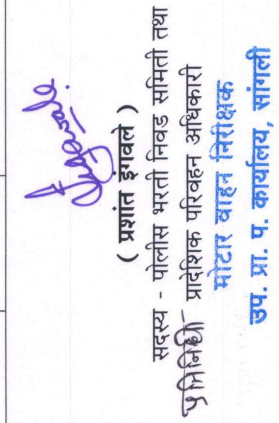 ( प्रशांत इंगवले )
सदस्य - पोलीस भरती निवड समिती तथा
प्रतिनिधी प्रादेशिक परिवहन अधिकारी
मोटार वाहन निरीक्षक
उप. प्रा. प. कार्यालय, सांगली